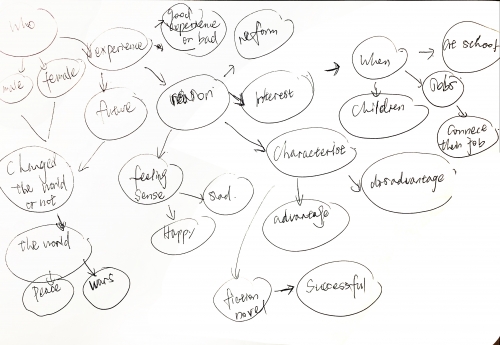 who
male
female
experience
good
experience
or bad
reform
when
at school
Jobs
connece
their job
children
future
reason
Interest
Characterist
disadvantage
advantage
Changed
the world
or not
feeling
sense
sad.
Happy
the world
Peace
wars
fiction
novel
Successful